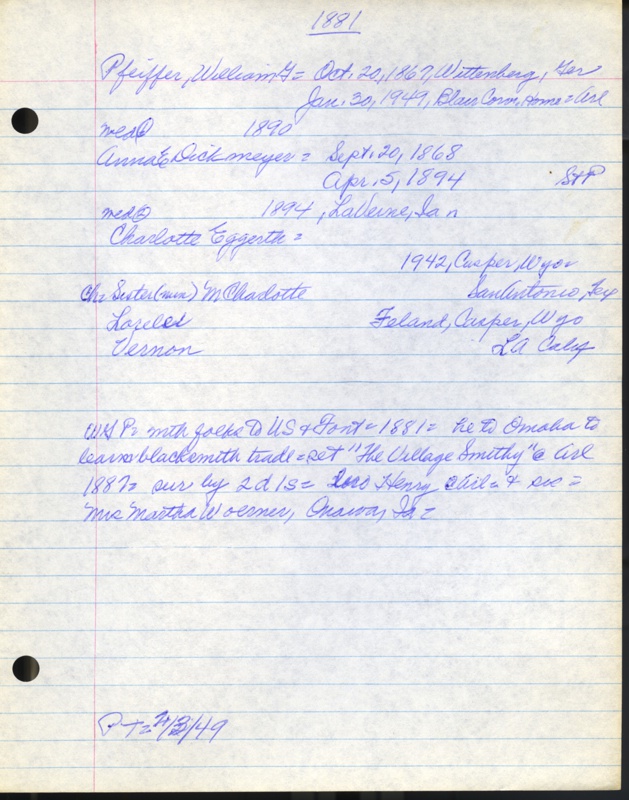 1881
Pfeiffer, William G = Oct. 20, 1867, Wittenberg, Ger
Jan. 30, 1949, Blair Conv, Home = Arl
med① 1890
Anna E Dickmeyer = Sept. 20, 1868
Apr. 5, 1894 S+P
med② 1894, LaVerne, Ia
Charlotte Eggerth =
1942, Casper, Wyo
Ch: Sister (nun) M Charlotte San Antonio, Tex
Loreles Feland, Casper, Wyo
Vernon LA Calif
WGP = with folks to US + Font = 1881 = he to Omaha to
learn blacksmith trade = set "The Village Smithy" @ Arl
1887 = sur by 2d 1s = bro Henry Arl = + sis =
Mrs Martha Woerner, Onawa, Ia =
P-T = 2/3/49